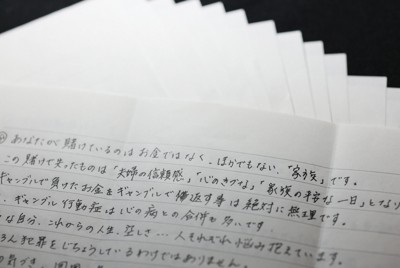 あなたが賭けているのはお金ではなく、ほかでもない、「家族」です。
この賭けで失ったものは「夫婦の信頼感」「心のきづな」「家族の平安な一日」となり
ギャンブルで負けたお金をギャンブルで借返す事は絶対に無理です。
、ギャンブル行動症は心の病との合併も多いです。
な自分、これからの人生、苦しさ…人それぞれ悩み抱えています。
ろん犯罪をじちょうしているわけではありません。